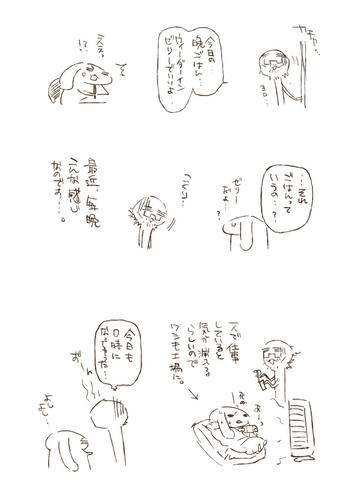 カチャ…
ヨロ…
今日の
晩ごはん…
ウィーダーイン
ゼリーでいいよ…
ええっ
!?
…それ
ごはんって
いうの…?
ゼリー
だよ…?
こくり…
最近、毎晩
こんな感じ
なのです…。
一人で仕事
していると
気が滅入る
らしいので
ワシも工場に。
今日も
0時に
なっちゃった…
ずーん
よし
よし…